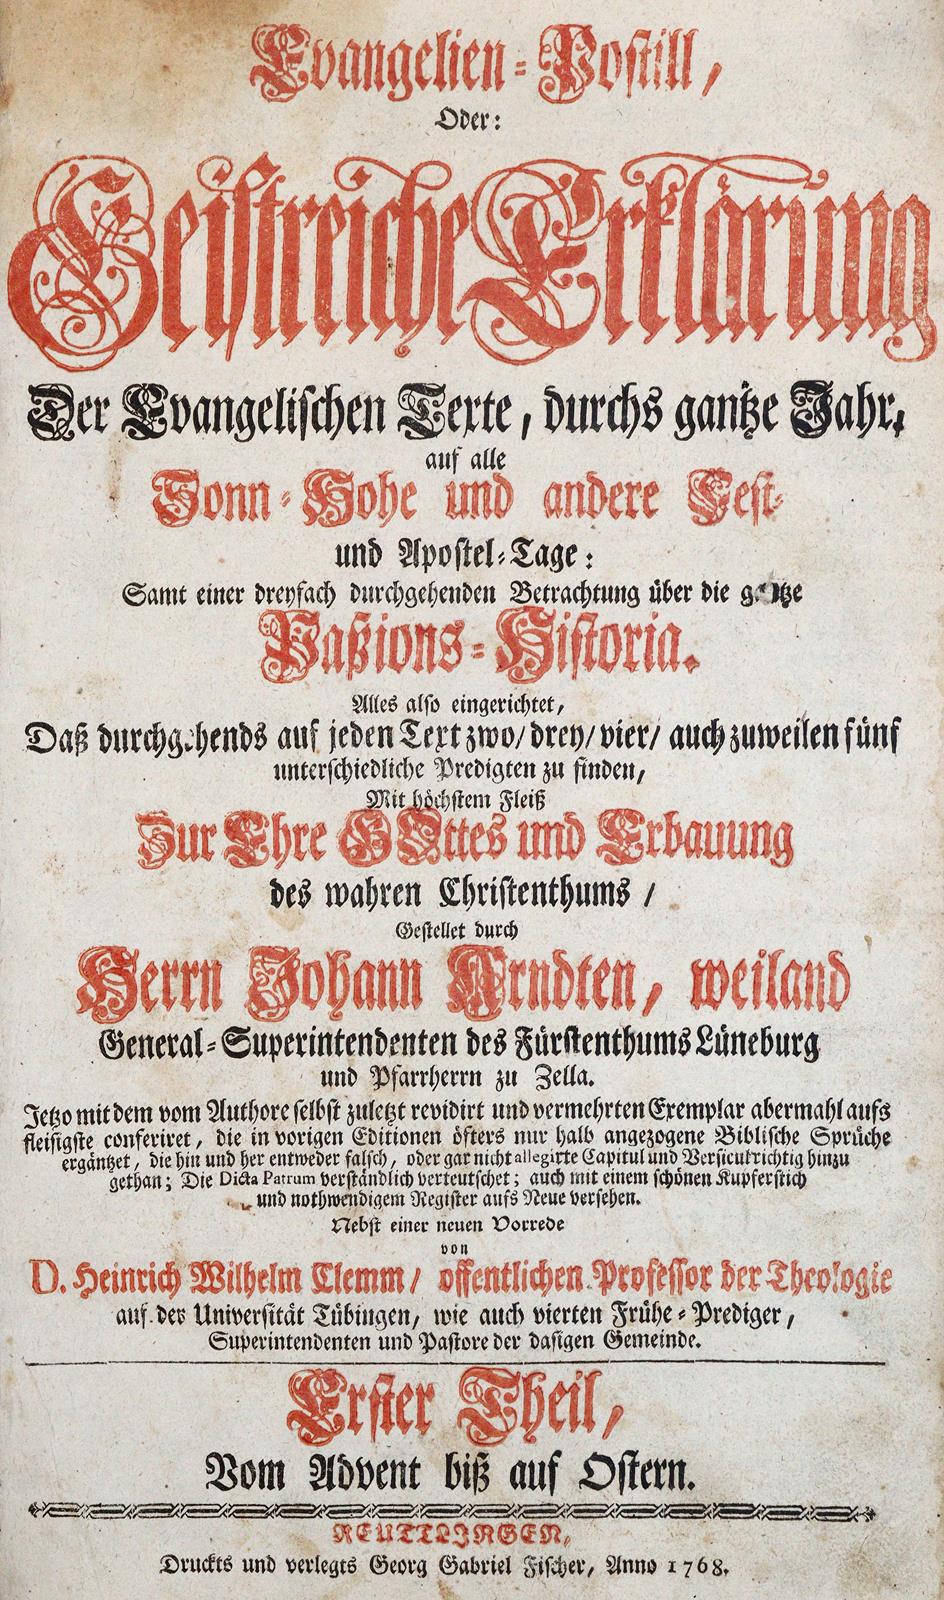 Evangelien-Postill,
Oder:
Geistreiche Erklärung
Der Evangelischen Texte, durchs gantze Jahr,
auf alle
Sonn-Hohe und andere Fest-
und Apostel-Tage:
Samt einer dreyfach durchgehenden Betrachtung über die gantze
Paßions-Historia.
Alles also eingerichtet,
Daß durchgehends auf jeden Text zwo/ drey/ vier/ auch zuweilen fünf
unterschiedliche Predigten zu finden,
Mit höchstem Fleiß
Zur Ehre GOttes und Erbauung
des wahren Christenthums /
Gestellet durch
Herrn Johann Arndten, weiland
General-Superintendenten des Fürstenthums Lüneburg
und Pfarrherrn zu Zella.
Jetzo mit dem vom Authore selbst zuletzt revidirt und vermehrten Exemplar abermahl aufs
fleisigste conferiret, die in vorigen Editionen öfters nur halb angezogene Biblische Sprüche
ergäntzet, die hin und her entweder falsch, oder gar nicht allegirte Capitul und Versicul richtig hinzu
gethan; Die Dicta Patrum verständlich verteutschet; auch mit einem schönen Kupferstich
und nothwendigem Register aufs Neue versehen.
Nebst einer neuen Vorrede
von
D. Heinrich Wilhelm Clemm/ offentlichen Professor der Theologie
auf der Universität Tübingen, wie auch vierten Frühe-Prediger,
Superintendenten und Pastore der dasigen Gemeinde.
Erster Theil,
Vom Advent biß auf Ostern.
REUTLINGEN,
Druckts und verlegts Georg Gabriel Fischer, Anno 1768.